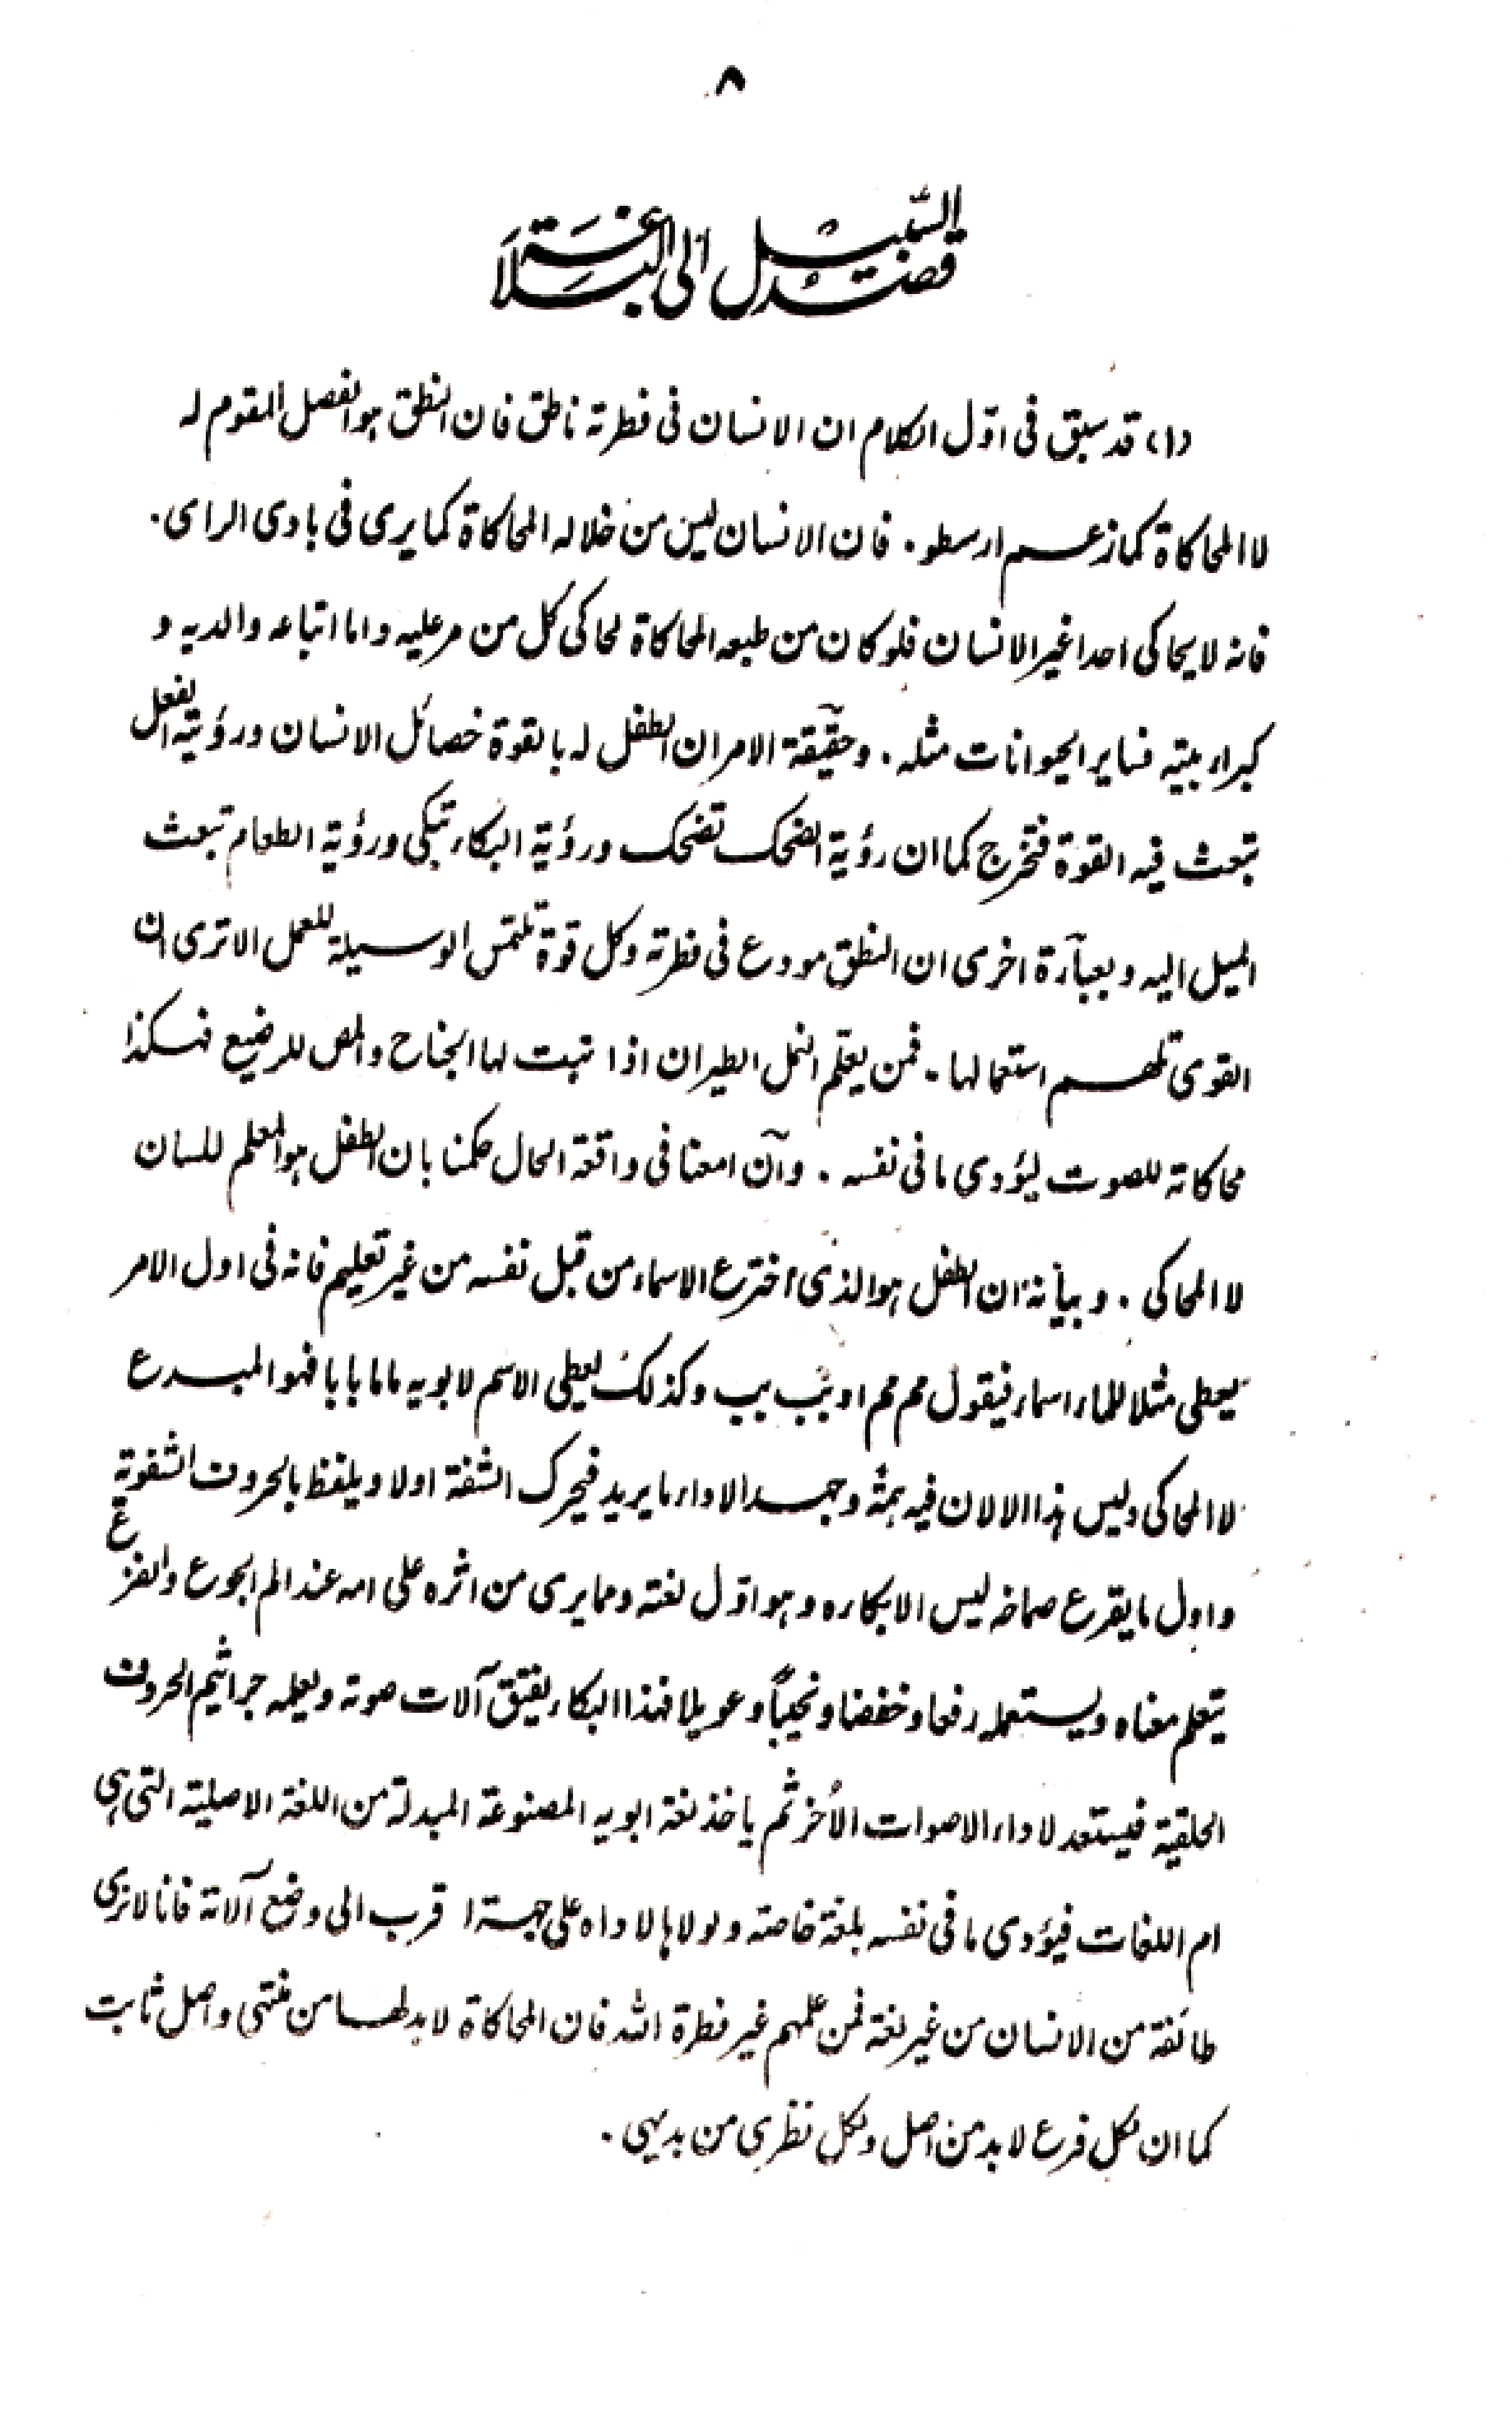 ٨
قصد السبيل الى البلاغة
(١) قد سبق فى اوّل الكلام ان الانسان فى فطرته ناطق فان النطق هو الفصل المقوم له
لا المحاكاة كما زعم ارسطو. فان الانسان ليس من خلاله المحاكاة كما يرى فى بادى الراى.
فانه لا يحاكى احدا غير الانسان فلو كان من طبعه المحاكاة لحاكى كل من مر عليه واما اتباعه والديه و
كبراء بيته فساير الحيوانات مثله. وحقيقة الامر ان الطفل له بالقوة خصائل الانسان ورؤية الفعل
تبعث فيه القوة فتخرج كما ان رؤية الضحك تضحك ورؤية البكاء تبكى ورؤية الطعام تبعث
الميل اليه وبعبارة اخرى ان النطق مودع فى فطرته وكل قوة تلتمس الوسيلة للعمل الا ترى ان
القوى تلهم استعمالها. فمن يعلّم النمل الطيران اذا نبت لها الجناح والمص للرضيع فهكذا
محاكاته للصوت ليؤدى ما فى نفسه. وآن امعنا فى واقعة الحال حكمنا بان الطفل هو المعلم للسان
لا المحاكى. وبيانه ان الطفل هو الذى اخترع الاسماء من قبل نفسه من غير تعليم فانه فى اول الامر
يعطى مثلا للماء اسماء فيقول مم مم او بب بب وكذلك يعطى الاسم لابويه ماما بابا فهو المبدع
لا المحاكى وليس هذا الا لان فيه همّة وجهد الاداء ما يريد فيحرك الشفة اولا ويلفظ بالحروف الشفوية
واول ما يقرع صماخه ليس الا بكاره وهو اوّل لغته ومما يرى من اثره على امه عند الم الجوع والفزع
يتعلم معناه ويستعمله رفعا وخفضا ونحيباً وعويلا فهذا البكاء يفتق آلات صوته ويعلمه جراثيم الحروف
الحلقية فيستعد لاداء الاصوات الأخر ثم ياخذ لغة ابويه المصنوعة المبدلة من اللغة الاصلية التى هى
ام اللغات فيؤدى ما فى نفسه بلغة خاصة ولولاها لاداه على جهة اقرب الى وضع آلاته فانا لا نرى
طائفة من الانسان من غير لغة فمن علمهم غير فطرة الله فان المحاكاة لا بد لها من منتهى واصل ثابت
كما ان لكل فرع لا بد من اصل ولكل نظرى من بديهى.